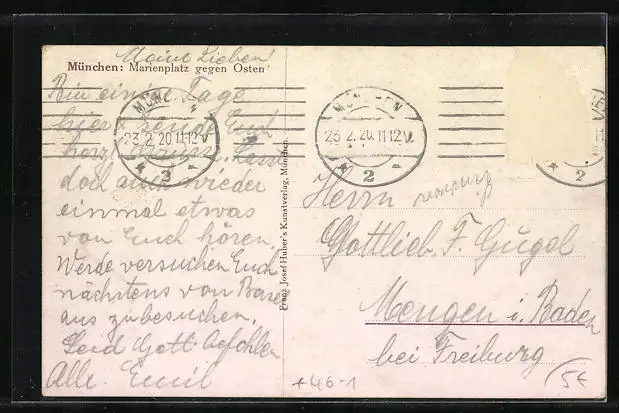 Meine Lieben!
München: Marienplatz gegen Osten
Bin einige Tage
hier & sende Euch
herzl. Grüsse. Lasst
doch auch wieder
einmal etwas
von Euch hören.
Werde versuchen Euch
nächstens von Basel
aus zu besuchen.
Seid Gott befohlen
Alle. Emil
Franz Josef Huber's Kunstverlag, München.
MÜNCHEN
23.2.20.11-12V.
2
MÜNCHEN
23.2.20.11-12V.
2
2
Herrn
Gottlieb F. Gugel
Mengen i. Baden
bei Freiburg
+46-1
5€